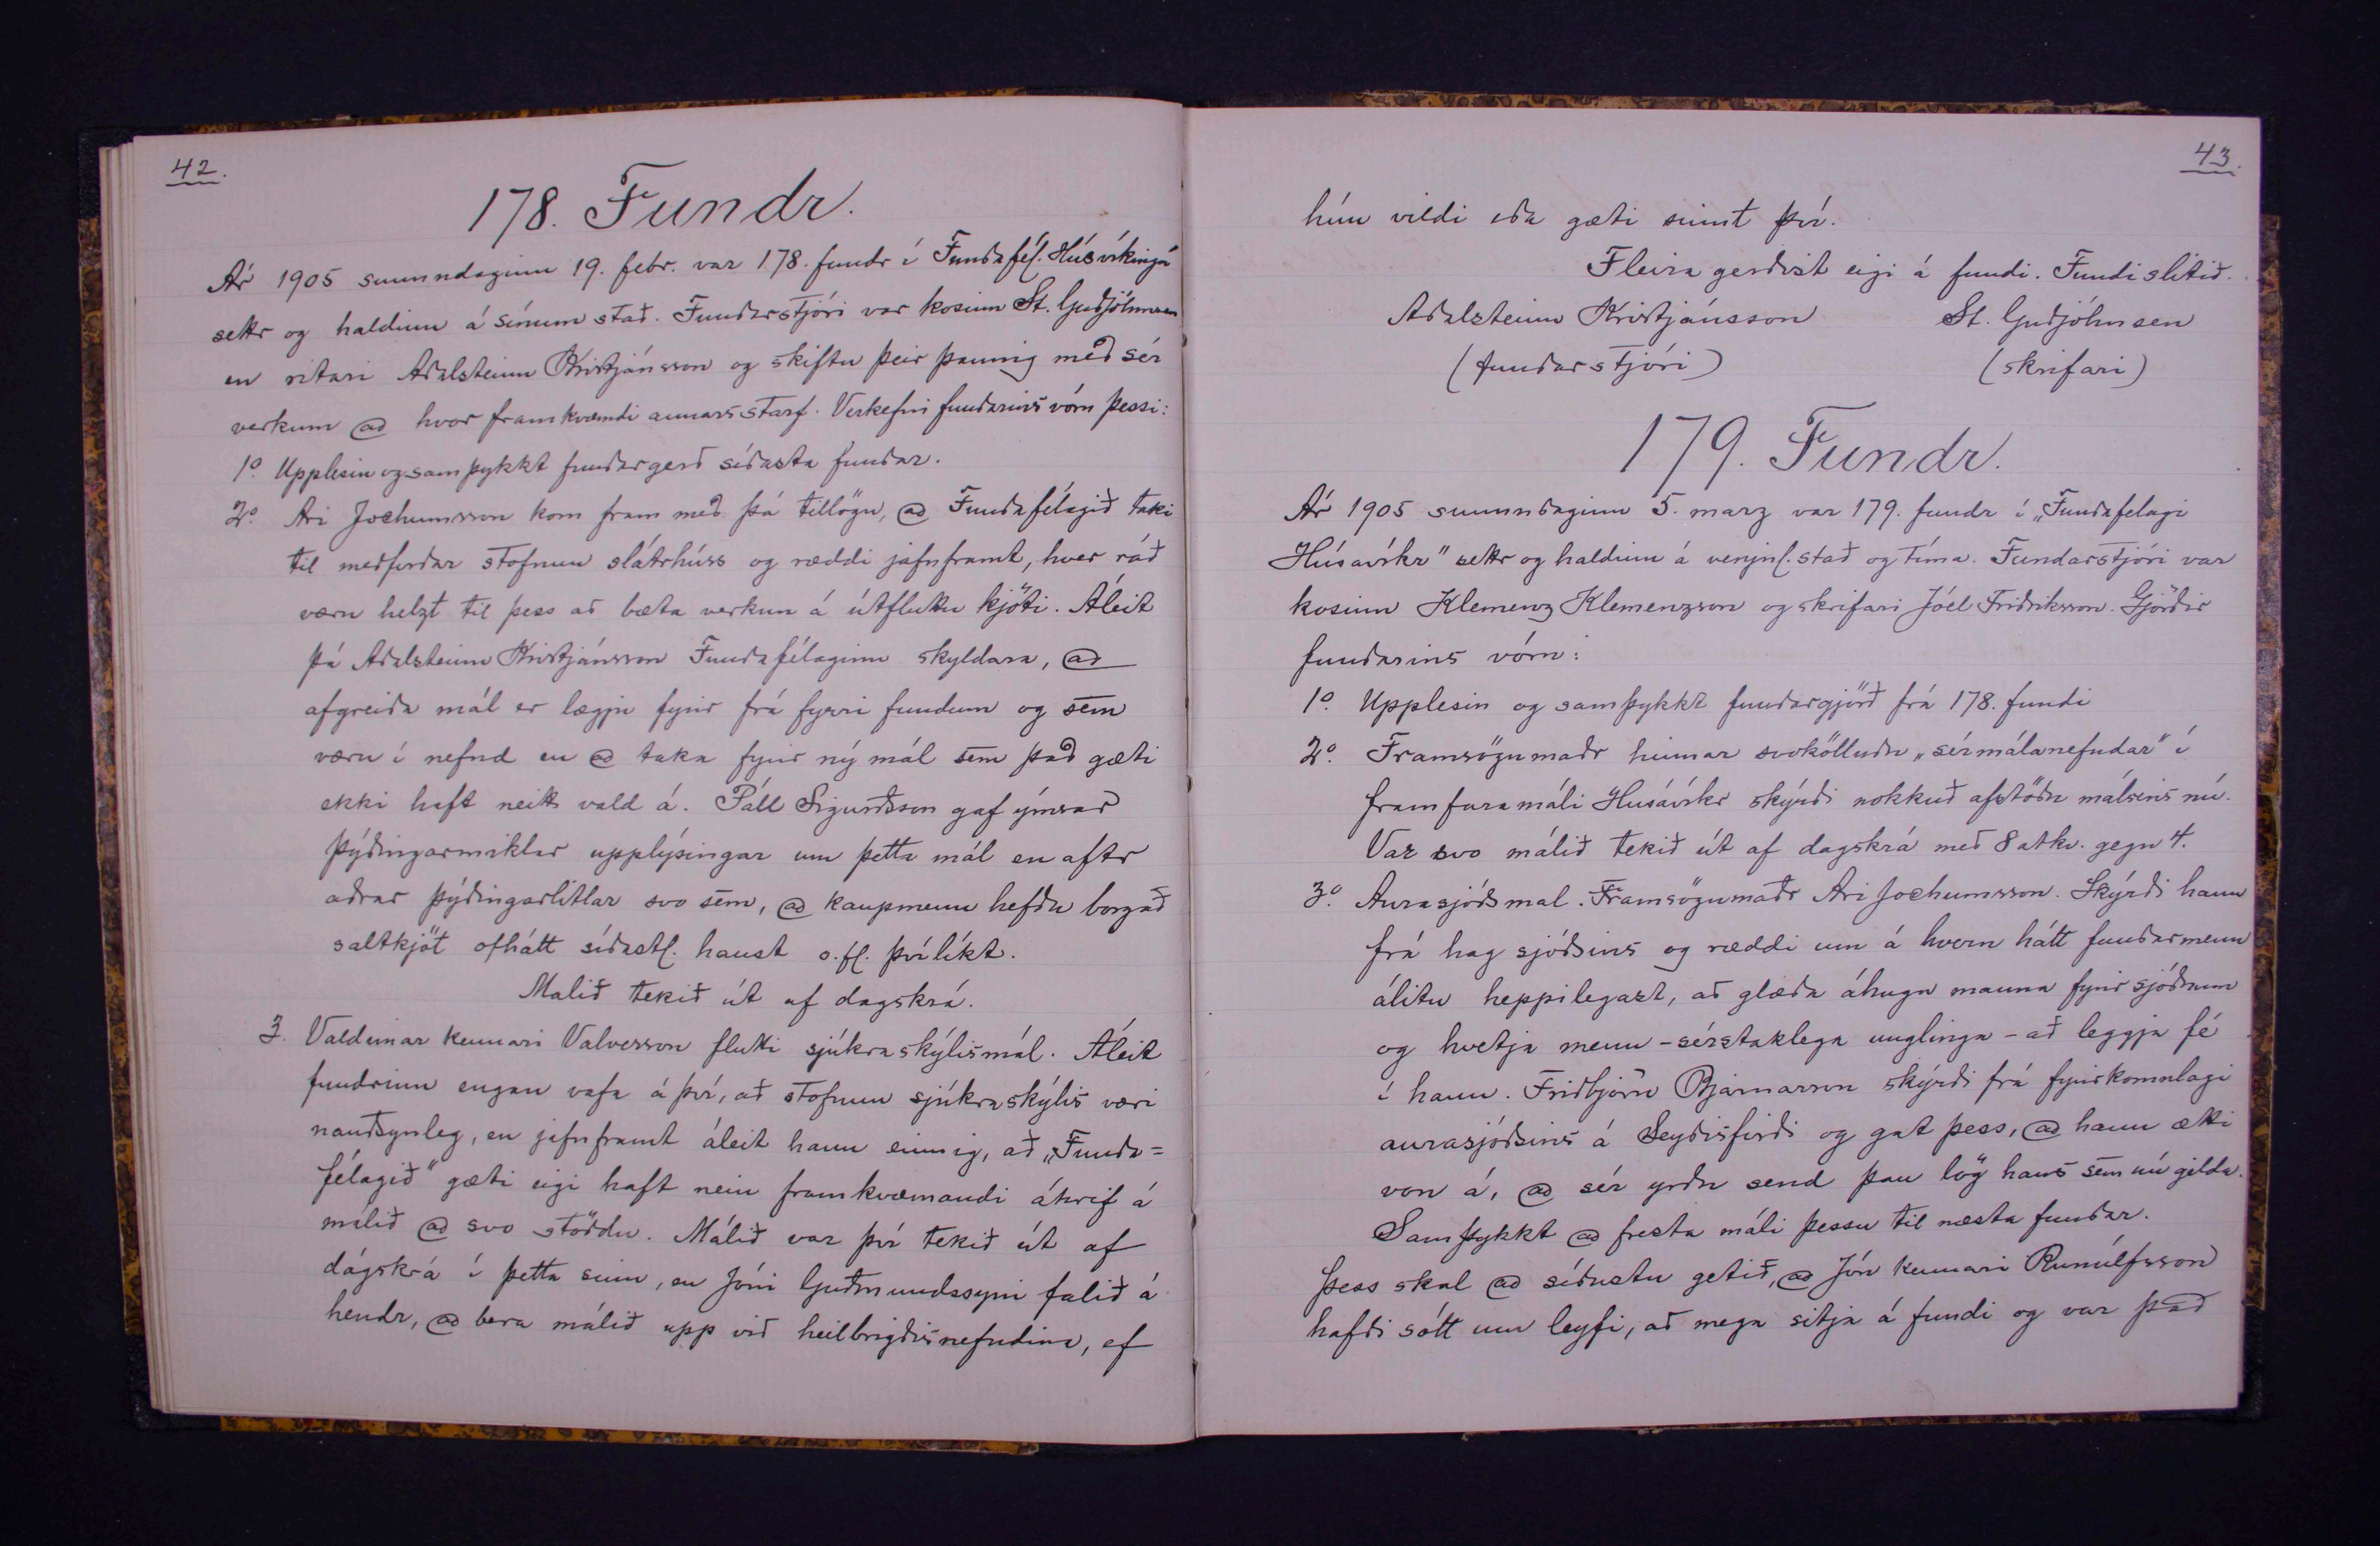 42.
178. Fundr.
Ár 1905 sunnudaginn 19. febr. var 178. fundr í Fundafél. Húsvíkinga
settr og haldinn á sínum stað. Fundarstjóri var kosinn St. Guðjóhnsen
en ritari Aðalsteinn Kristjánsson og skiftu þeir þannig með sér
verkum að hvor framkvæmdi annars starf. Verkefni fundarins vóru þessi:
1º Upplesin og samþykkt fundargerð síðasta fundar.
2º. Ari Jochumsson kom fram með þá tillögu, að Fundafélagið taki
til meðferðar stofnun slátrhúss og ræddi jafnframt, hver ráð
væru helzt til þess að bæta verkun á útfluttu kjöti. Áleit
þá Aðalsteinn Kristjánsson Fundafélaginu skyldara, að
afgreiða mál er lægju fyrir frá fyrri fundum og sem
væru í nefnd en að taka fyrir ný mál sem það gæti
ekki haft neitt vald á. Páll Sigurðsson gaf ýmsar
þýðingarmiklar upplýsingar um þetta mál en aftr
aðrar þýðingarlitlar svo sem, að kaupmenn hefðu borgað
saltkjöt ofhátt síðastl. haust o.fl. þvílíkt.
Malið tekið út af dagskrá.
3. Valdimar kennari Valvesson flutti sjúkraskýlismál. Áleit
fundrinn engan vafa á því, að stofnun sjúkraskýlis væri
nauðsynleg, en jafnframt áleit hann einnig, að „Funda=
félagið" gæti eigi haft nein framkvæmandi áhrif á
málið að svo stöddu. Málið var því tekið út af
dagskrá í þetta sinn, en Jóni Guðmundssyni falið á
hendr, að bera málið upp við heilbrigðisnefndina, ef
43.
hún vildi eða gæti sinnt því.
Fleira gerðist eigi á fundi. Fundi slitið.
Aðalsteinn Kristjánsson St. Guðjóhnsen
(fundarstjóri) (skrifari)
179. Fundr.
Ár 1905 sunnudaginn 5. marz var 179. fundr í „Fundafelagi
Húsavíkr" settr og haldinn á venjul. stað og tíma. Fundarstjóri var
kosinn Klemenz Klemenzson og skrifari Jóel Friðriksson. Gjörðir
fundarins vóru:
1º. Upplesin og samþykkt fundargjörð frá 178. fundi
2º. Framsögumaðr hinnar svokölluðu „sérmálanefndar" í
framfaramáli Husavíkr skýrði nokkuð afstöðu málsins nú.
Var svo málið tekið út af dagskrá með 8 atkv. gegn 4.
3º. Aurasjóðsmal. Framsögumaðr Ari Jochumsson. Skýrði hann
frá hag sjóðsins og ræddi um á hvern hátt fundarmenn
álitu heppilegast, að glæða áhuga manna fyrir sjóðnum
og hvetja menn - sérstaklega unglinga - að leggja fé
í hann. Friðbjörn Bjarnarson skýrði frá fyrirkomulagi
aurasjóðsins á Seyðisfirði og gat þess, að hann ætti
von á, að sér yrðu send þau lög hans sem nú gilda.
Samþykkt að fresta máli þessu til næsta fundar.
Þess skal að síðustu getið, að Jón kennari Runúlfsson
hafði sótt um leyfi, að mega sitja á fundi og var það